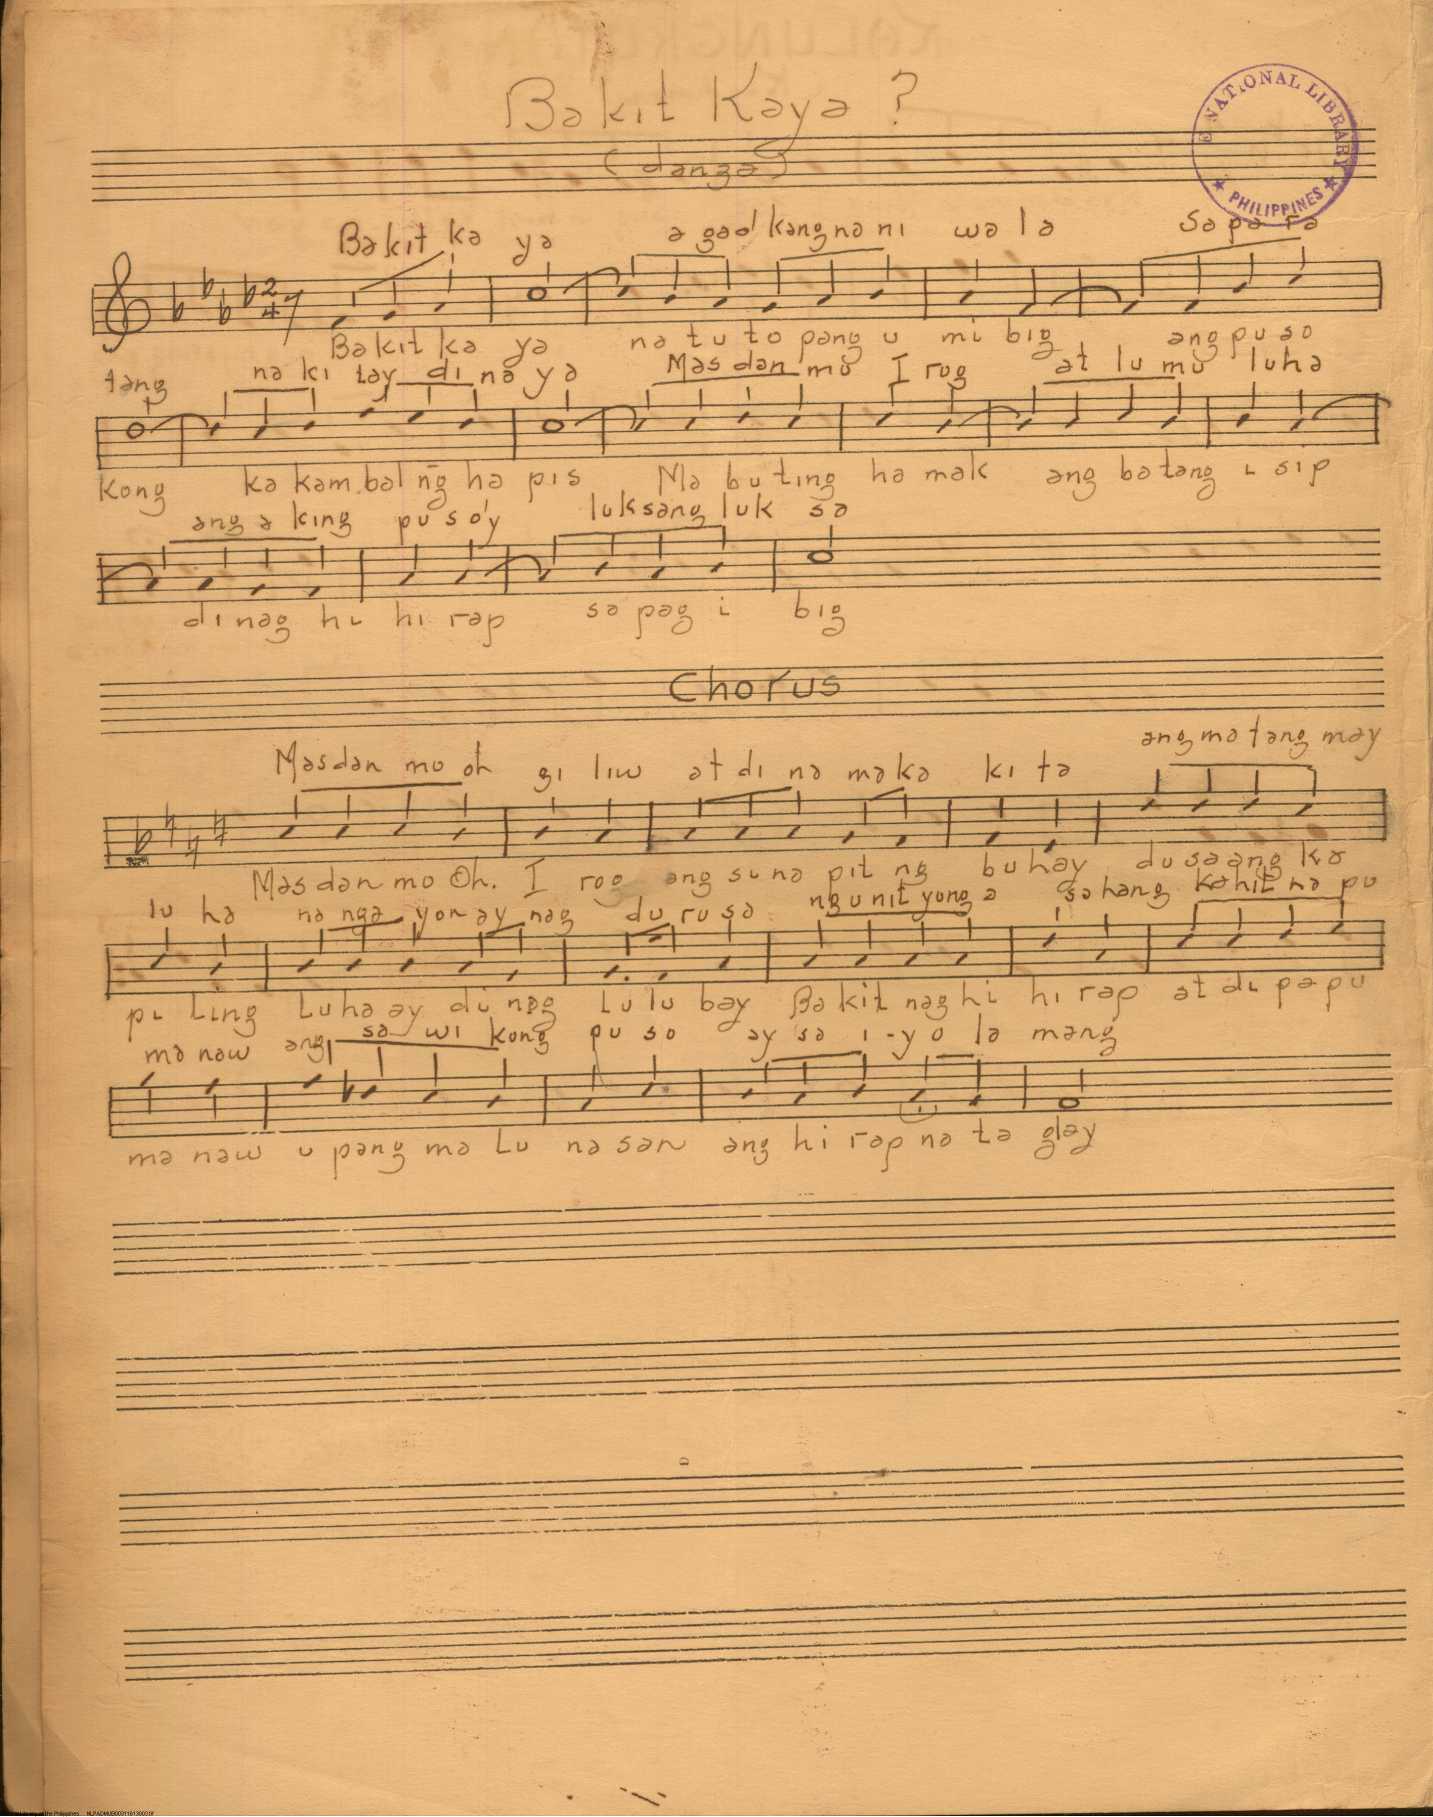 Bakit Kaya ?
(danza)
E NATIONAL LIBRARY
PHILIPPINES
Bakit ka ya a gad kang na ni wa la sa pa ra
Bakit ka ya na tu to pang u mi big ang pu so
tang na ki tay di na ya Mas dan mo I rog at lu mu luha
kong ka kam bal ng ha pis Ma bu ting ha mak ang ba tang i sip
ang a king pu so'y luksang luk sa
di nag hi hi rap sa pag i big
Chorus
ang ma tang may
Masdan mo oh gi liw at di na ma ka ki ta
Mas dan mo Oh. I rog ang su na pit ng bu hay du sa ang ka
lu ha na nga yon ay nag du ru sa ngunit yong a sa hang ka hit na pu
pi ling Lu ha ay di nag Lu lu bay Ba kit nag hi hi rap at di pa pu
ma naw ang sa wi kong pu so ay sa i-yo la mang
ma naw u pang ma Lu na san ang hi rap na ta glay